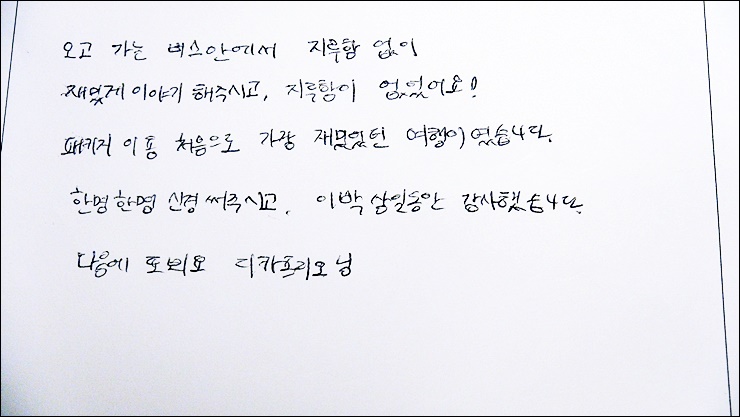 오고 가는 버스안에서 지루함 없이
재밌게 이야기 해주시고, 지루함이 없었어요!
패키지 이용 처음으로 가장 재밌었던 여행이였습니다.
한명한명 신경써주시고, 이박삼일동안 감사했습니다.
다음에 또뵈요 디카프리오님